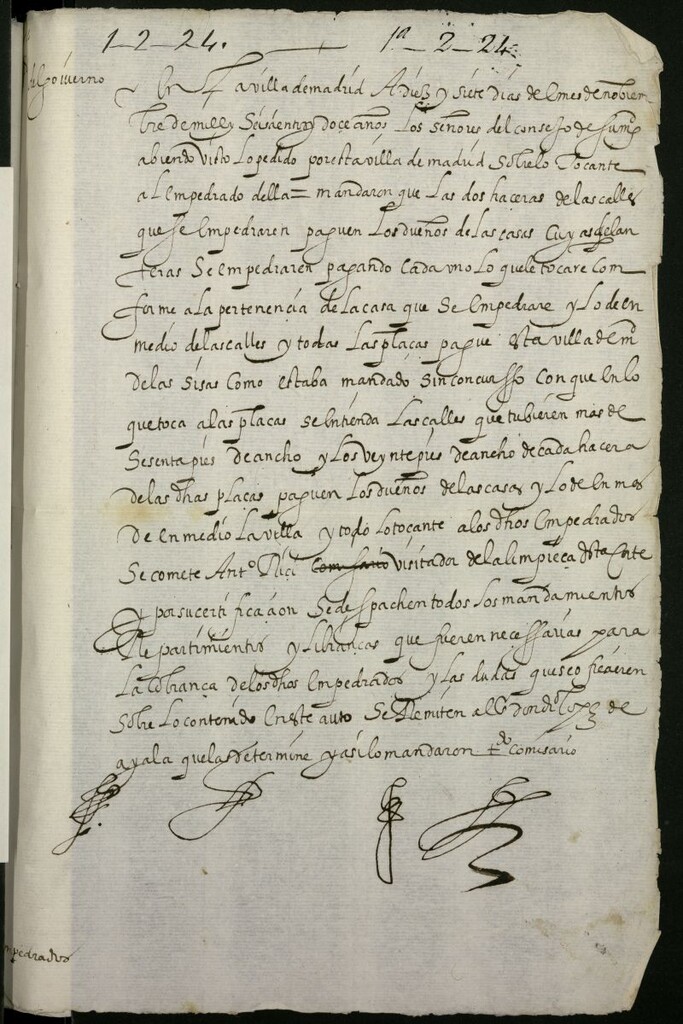 1-2-24. — 1ª 2-24.
de Gouierno
En la villa de madrid A diez y siete dias del mes de nobiem
bre de mill y seiscientos y doce años Los señores del consejo de su mgd
abiendo visto Lo pedido por esta villa de madrid sobre lo Tocante
a l empedrado della = mandaron que Las dos haceras de las calles
que se empedraren paguen Los dueños de Las casas cuyas delan
teras se empedraren pagando cada uno Lo que le tocare com
forme a La pertenencia de La casa que se empedrare y Lo de en
medio de las calles y todas Las plaças pague esta villa de md
de las sisas como estaba mandado sin concurso con que en lo
que toca a las plaças se entienda Las calles que tubieren mas de
sesenta pies de ancho y Los veynte pies de ancho de cada hacera
de las dhas plaças paguen Los dueños de las casas y Lo de en mas
de en medio La villa y todo lo tocante a los dhos empedrados
se comete Antº Rici comisario visitador de la limpieça desta corte
y por su certificaçion se despachen todos Los mandamientos
Repartimientos y Libranças que fueren necessarias para
La cobrança de los dhos empedrados y Las dudas que se ofrecieren
sobre Lo contenido en este auto se Remiten al Sr don dº Lopez de
ayala que las determine y asi lo mandaron comisario
empedrados